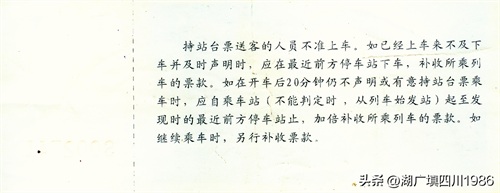 持站台票送客的人员不准上车。如已经上车来不及下
车并及时声明时，应在最近前方停车站下车，补收所乘列
车的票款。如在开车后20分钟仍不声明或有意持站台票乘
车时，应自乘车站（不能判定时，从列车始发站）起至发
现时的最近前方停车站止，加倍补收所乘列车的票款。如
继续乘车时，另行补收票款。
头条 @湖广填四川1986